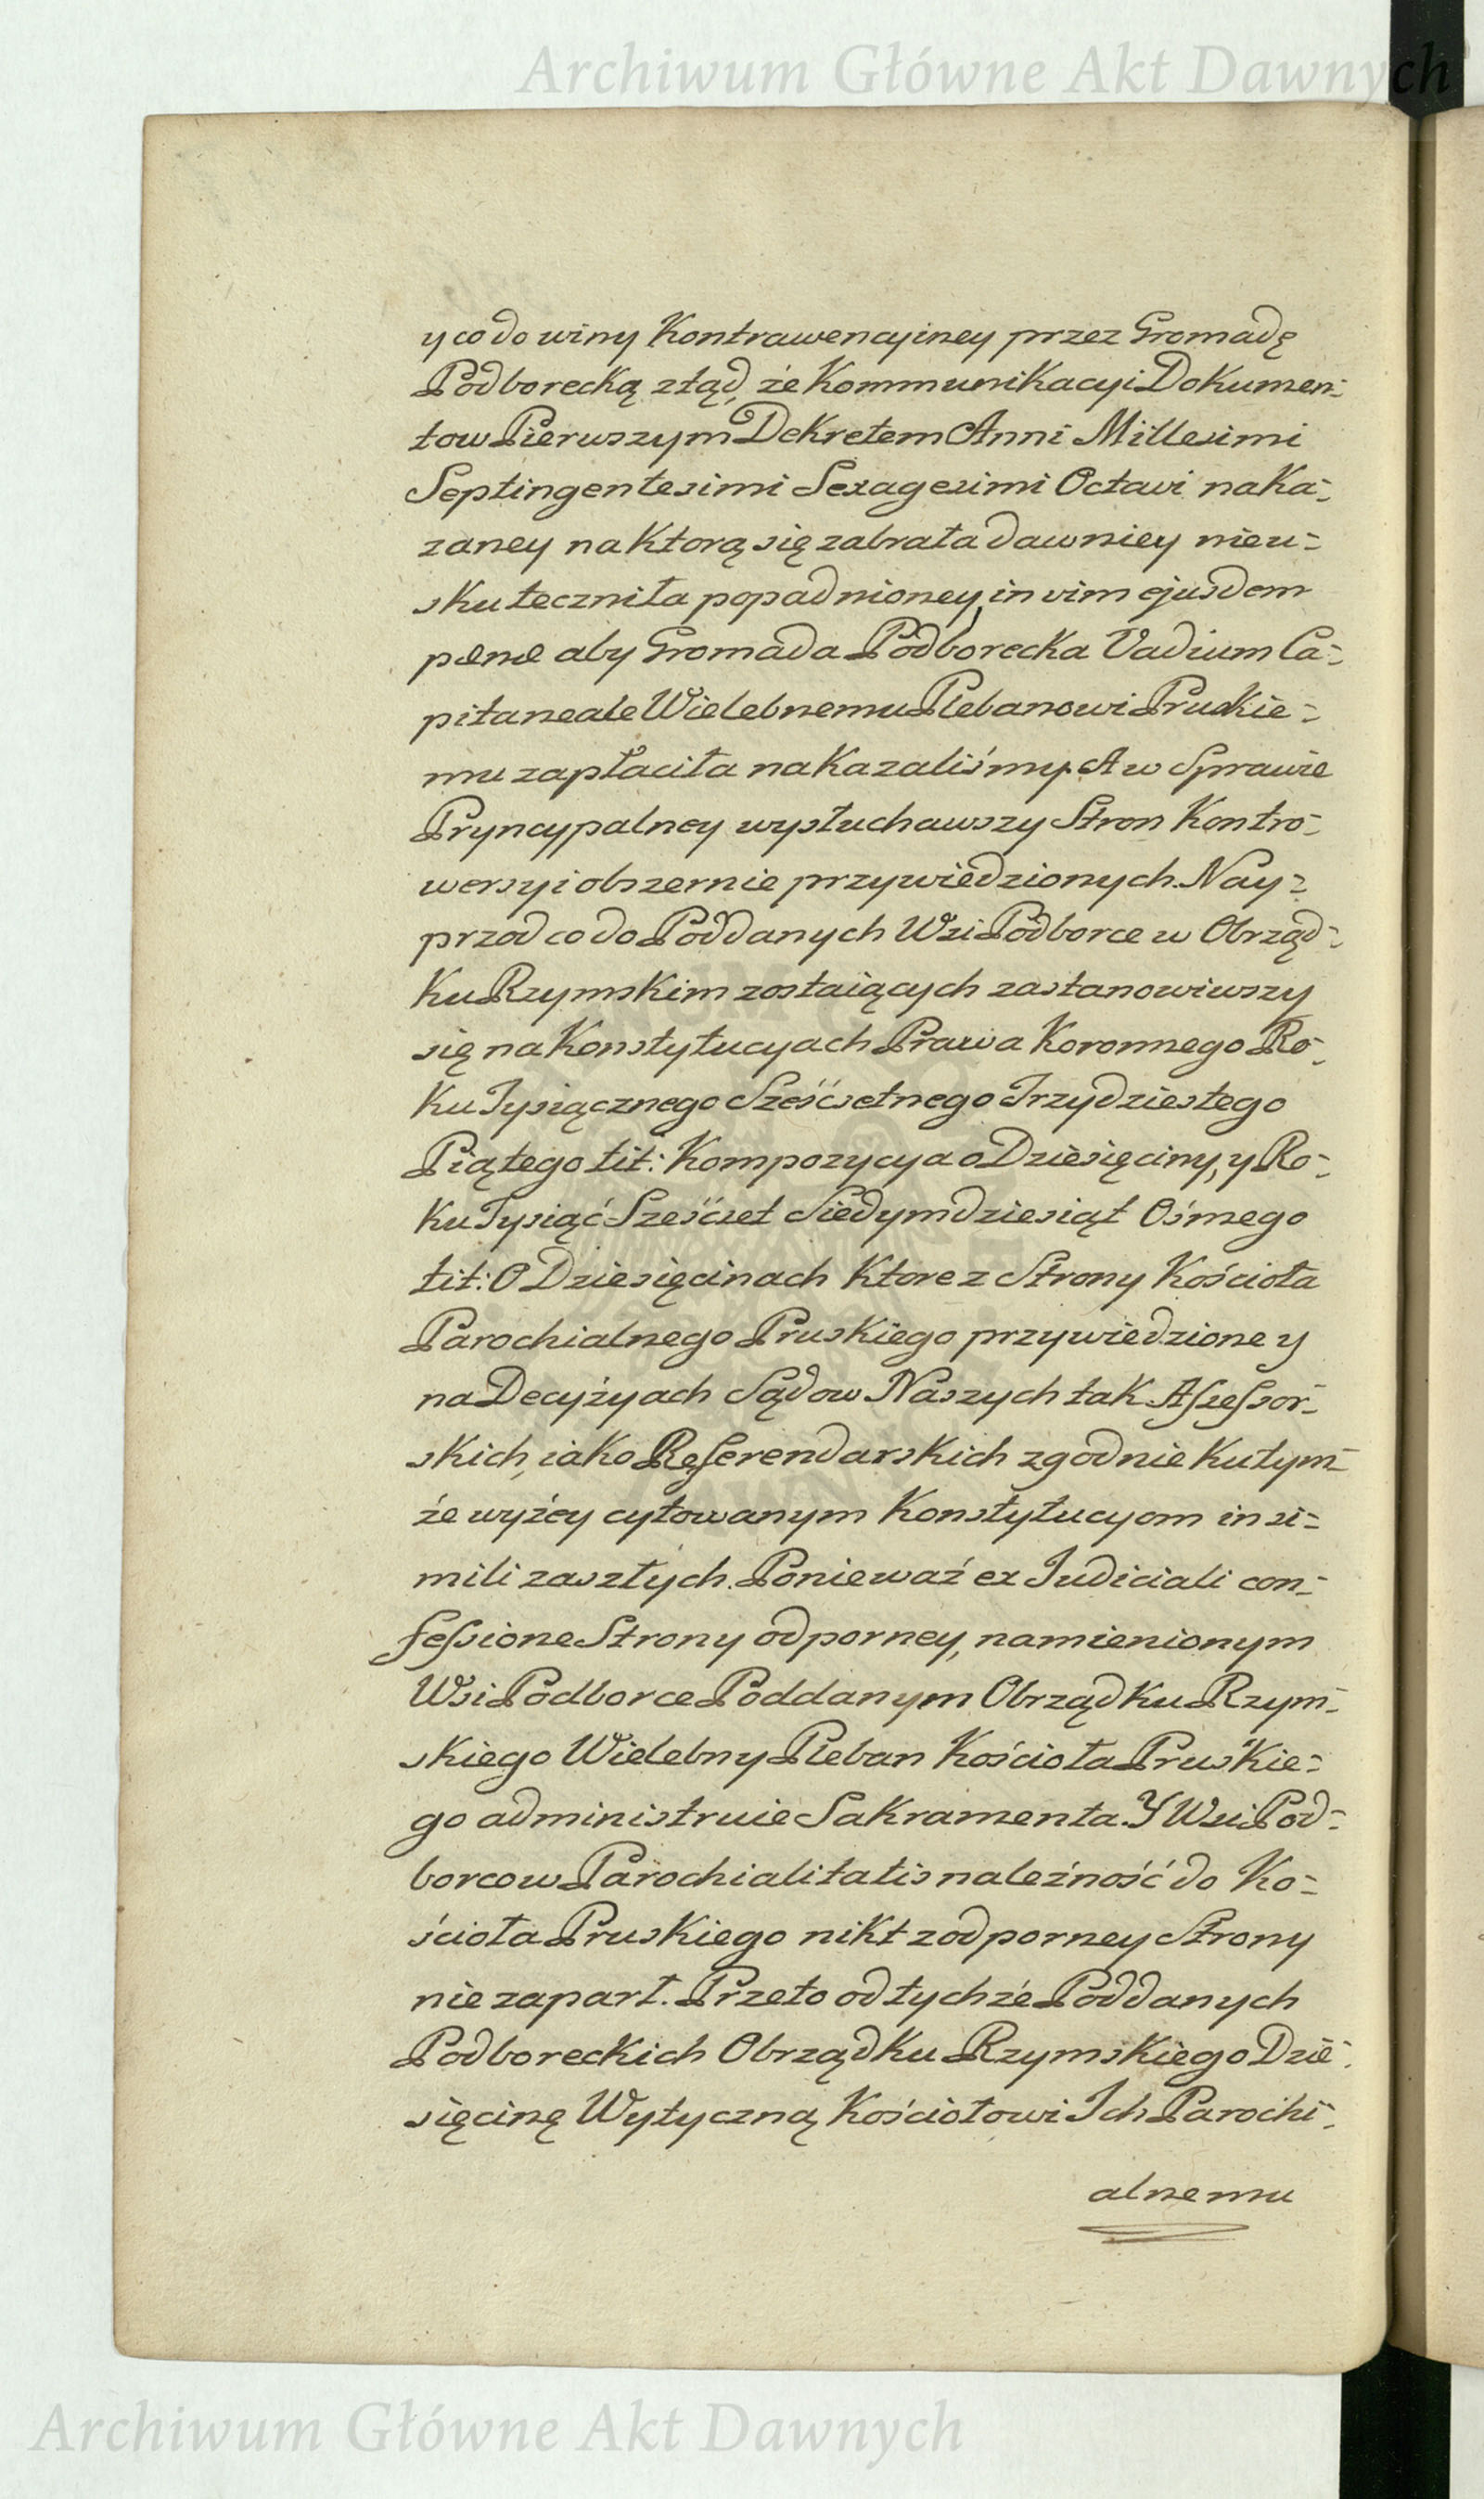 Archiwum Główne Akt Dawnych
y co do winy Kontrawencyiney przez Gromadę
Podborecką ztąd, że Kommunikacyi Dokumen=
tow Pierwszym Dekretem Anni Millesimi
Septingentesimi Sexagesimi Octavi naka=
zaney na Ktorą się zabrała dawniey nieu=
skuteczniła popadnioney, in vim ejusdem
pænæ aby Gromada Podborecka Vadium Ca=
pitaneale Wielebnemu Plebanowi Pruskie=
mu zapłaciła nakazaliśmy. A w Sprawie
Pryncypalney wysłuchawszy Stron Kontro=
wersyi obszernie przywiedzionych. Nay=
przod co do Poddanych Wsi Podborce w Obrząd=
ku Rzymskim zostaiących zastanowiwszy
się na Konstytucyach Prawa Koronnego Ro=
ku Tysiącznego Sześćsetnego Trzydziestego
Piątego tit: Kompozycya o Dziesięciny, y Ro=
ku Tysiąć Sześćset Siedymdziesiąt Osmego
tit: O Dziesięcinach Ktore z Strony Kościoła
Parochialnego Pruskiego przywiedzione y
na Decyżyach Sądow Naszych tak Assessor=
skich, iako Referendarskich zgodnie ku tym=
że wyżey cytowanym Konstytucyom in si=
mili zaszłych. Ponieważ ex Judiciali con=
fessione Strony odporney, namienionym
Wsi Podborce Poddanym Obrządku Rzym=
skiego Wielebny Pleban Kościoła Pruskie=
go administruie Sakramenta. Y Wsi Pod=
borcow Parochialitatis należność do Ko=
ścioła Pruskiego nikt z odporney Strony
nie zaparł. Przeto od tychże Poddanych
Podboreckich Obrządku Rzymskiego Dzie=
sięcinę Wytyczną Kościołowi Ich Parochi=
alnemu
Archiwum Główne Akt Dawnych